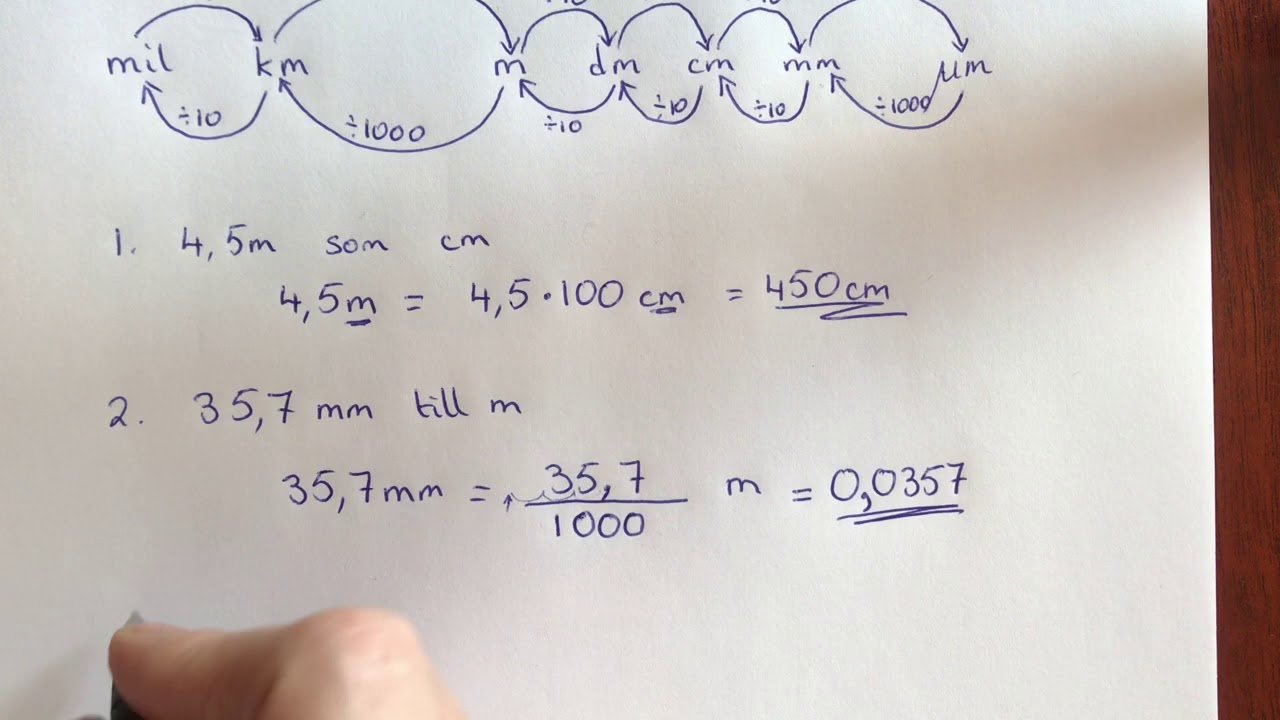 mil km m dm cm mm µm
÷10 ÷1000 ÷10 ÷10 ÷10 ÷1000
1. 4,5m som cm
4,5m = 4,5·100 cm = 450cm
2. 35,7 mm till m
35,7mm = 35,7 m = 0,0357
1000